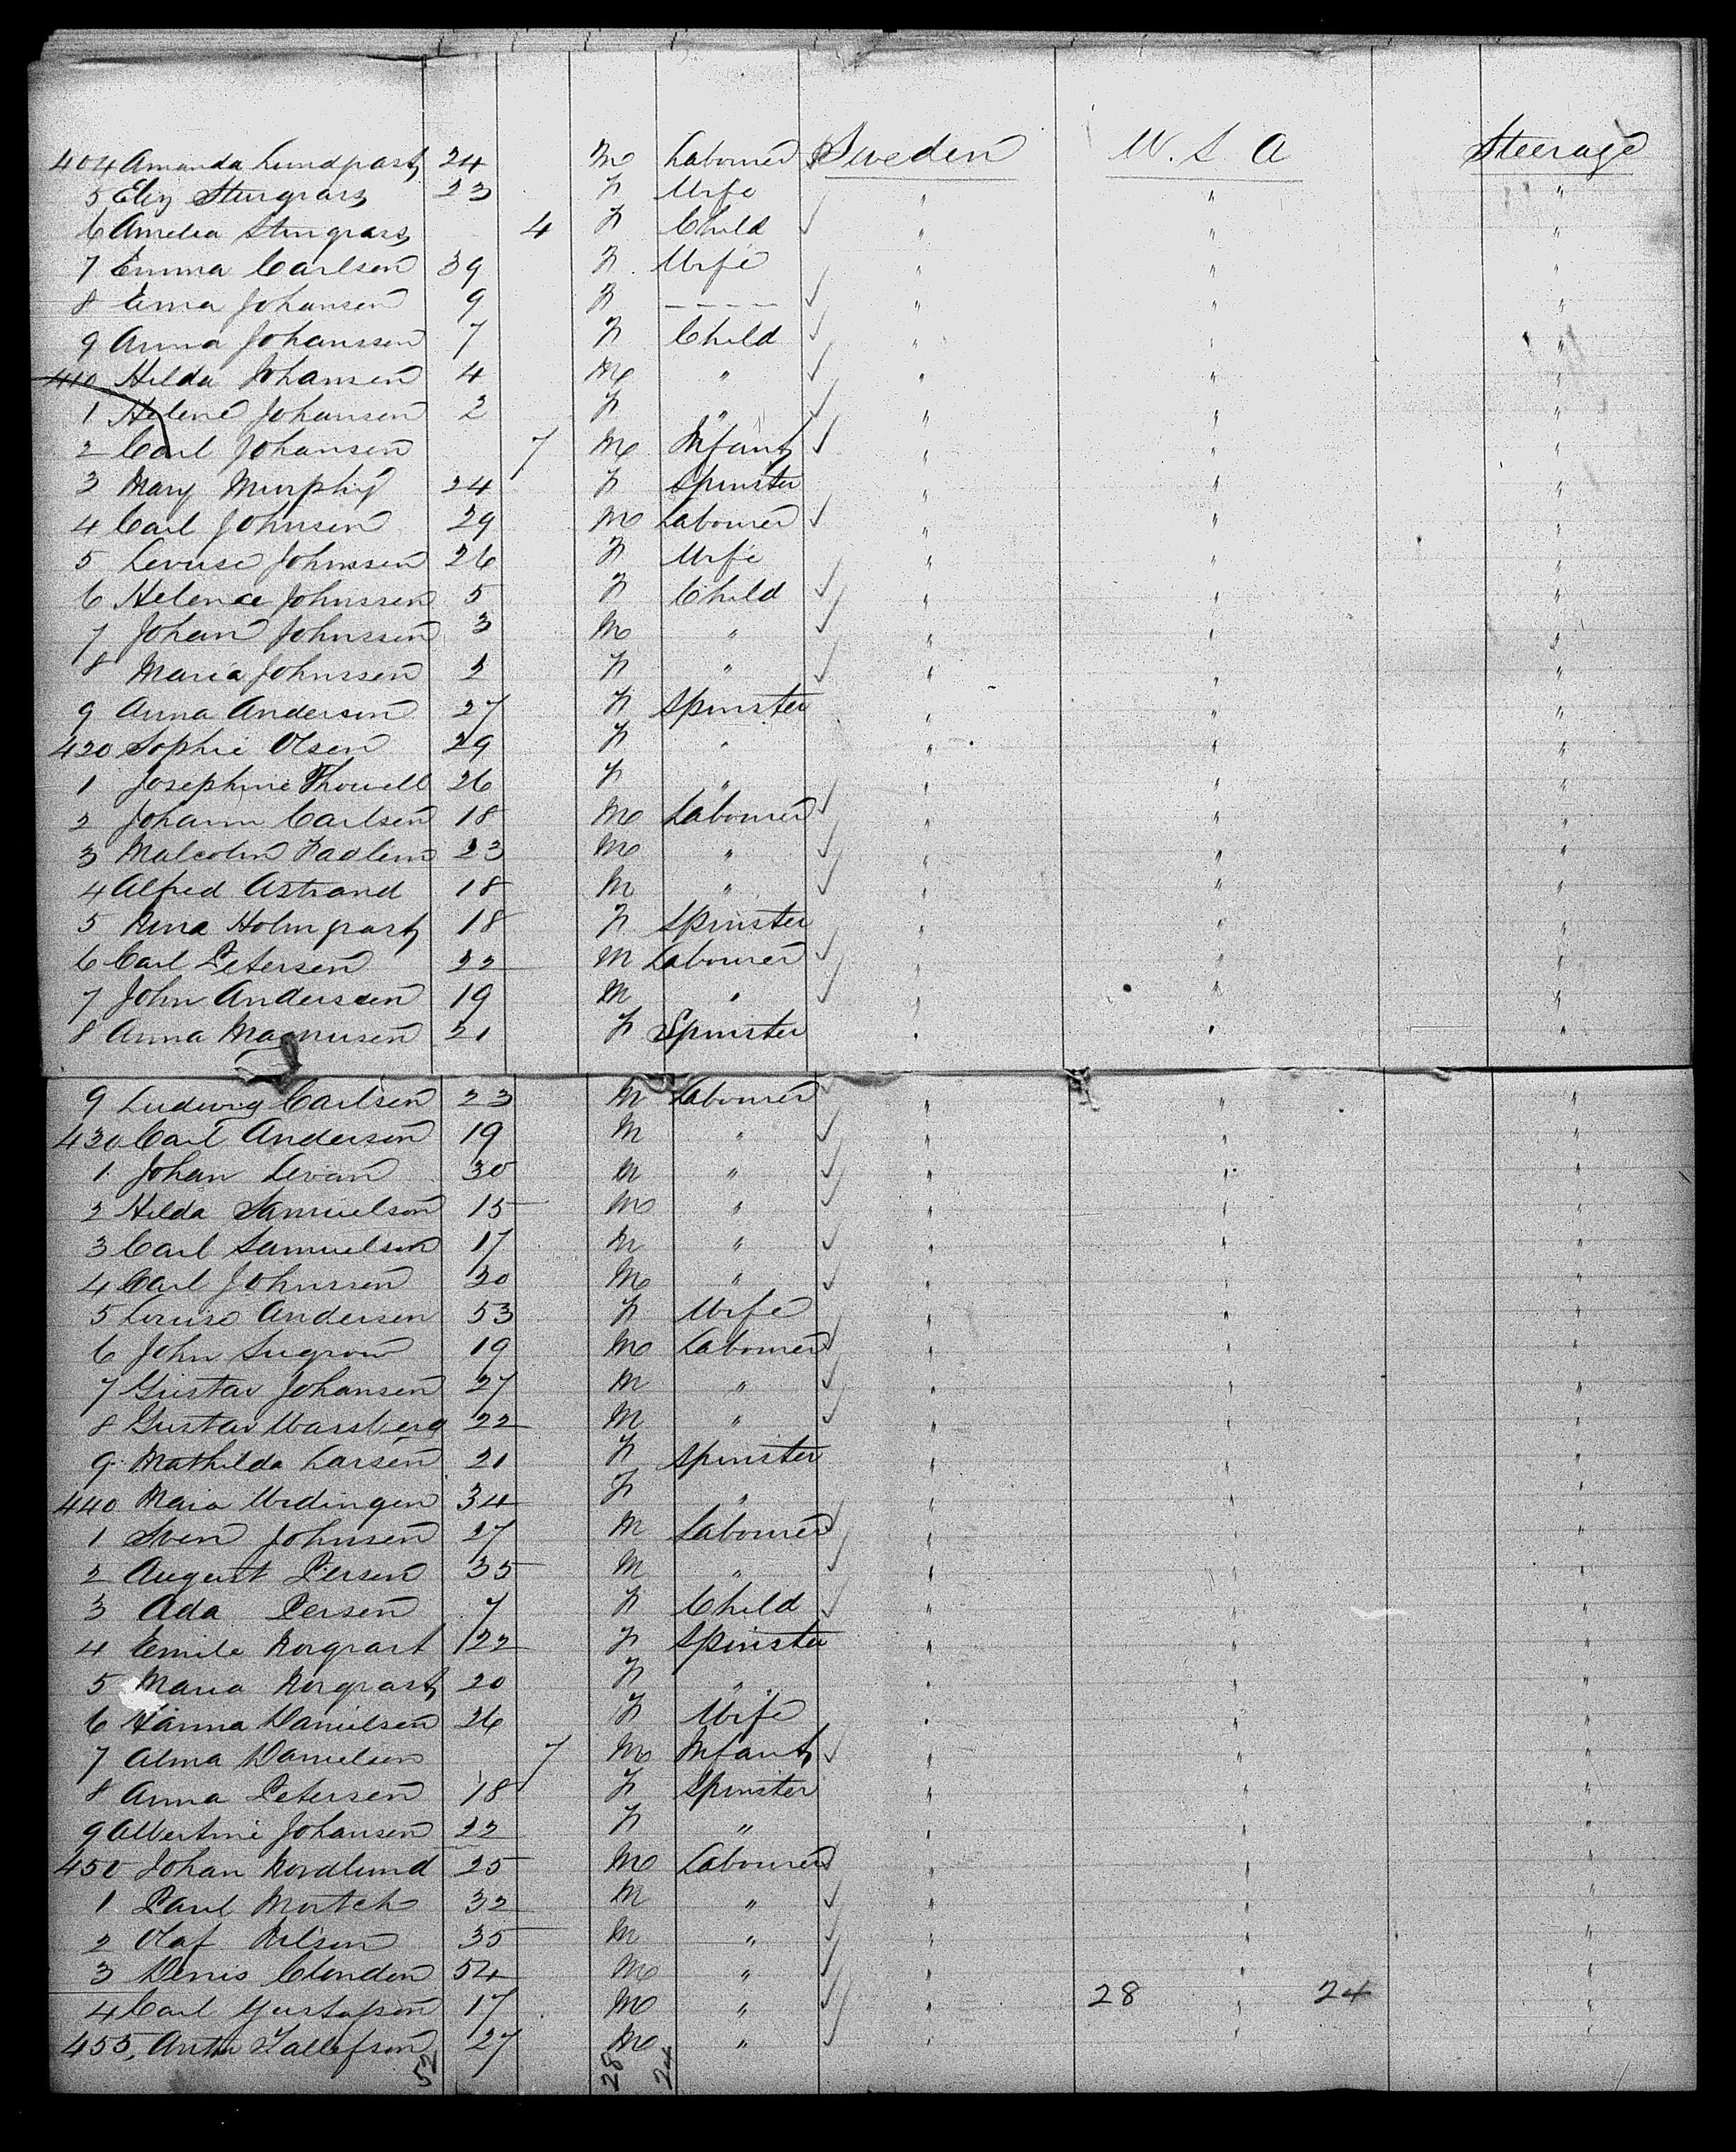 404 Amanda Lundqvast 24 M Labourer Sweden U. S. A Steerage
5 Eliz Stengrars 23 F Wife " " "
6 Amelia Stengrars 4 F Child " " "
7 Emma Carlsen 39 F Wife " " "
8 Erna Johansen 9 F ---- " " "
9 Anna Johanssen 7 F Child " " "
410 Hilda Johansen 4 M " " " "
1 Helene Johansen 2 F " " " "
2 Carl Johansen 7 M Infant " " "
3 Mary Murphy 24 F Spinster " " "
4 Carl Johnsen 29 M Labourer " " "
5 Lovise Johnssen 26 F Wife " " "
6 Helence Johnssen 5 F Child " " "
7 Johan Johnssen 3 M " " " "
8 Maria Johnssen 2 F " " " "
9 Anna Anderson 27 F Spinster " " "
420 Sophie Olsen 29 F " " " "
1 Josephine Thowell 26 F " " " "
2 Johann Carlsen 18 M Labourer " " "
3 Malcolm 23 M " " " "
4 Alfred Astrand 18 M " " " "
5 Anna Holmqvast 18 F Spinster " " "
6 Carl Petersen 22 M Labourer " " "
7 John Anderssen 19 M " " " "
8 Anna Magnusen 21 F Spinster " " "
9 Ludewig Carlsen 23 M Labourer " " "
430 Carl Anderson 19 M " " " "
1 Johan Levan 30 M " " " "
2 Hilda Samuelson 15 M " " " "
3 Carl Samuelson 17 M " " " "
4 Carl Johnssen 20 M " " " "
5 Louise Andersen 53 F Wife " " "
6 John 19 M Labourer " " "
7 Gustav Johansen 27 M " " " "
8 Gustav Wassberg 22 M " " " "
9 Mathilda Larsen 21 F Spinster " " "
440 Maia 34 F " " " "
1 Sven Johnsen 27 M Labourer " " "
2 August Persen 35 M " " " "
3 Ada Persen 7 F Child " " "
4 Emile Norqvast 22 F Spinster " " "
5 Maria Norqvast 20 F " " " "
6 Hanna Danielsen 26 F Wife " " "
7 Alma Danielsen 7 M Infant " " "
8 Anna Petersen 18 F Spinster " " "
9 Albertine Johansen 22 F " " " "
450 Johan Nordlund 25 M Labourer " " "
1 Paul Mortch 32 M " " " "
2 Olaf Nilsen 35 M " " " "
3 Denis Clenden 54 M " " " "
4 Carl Gustafson 17 M " " 28 " 24 "
455, 27 M " " " "
52 28 24